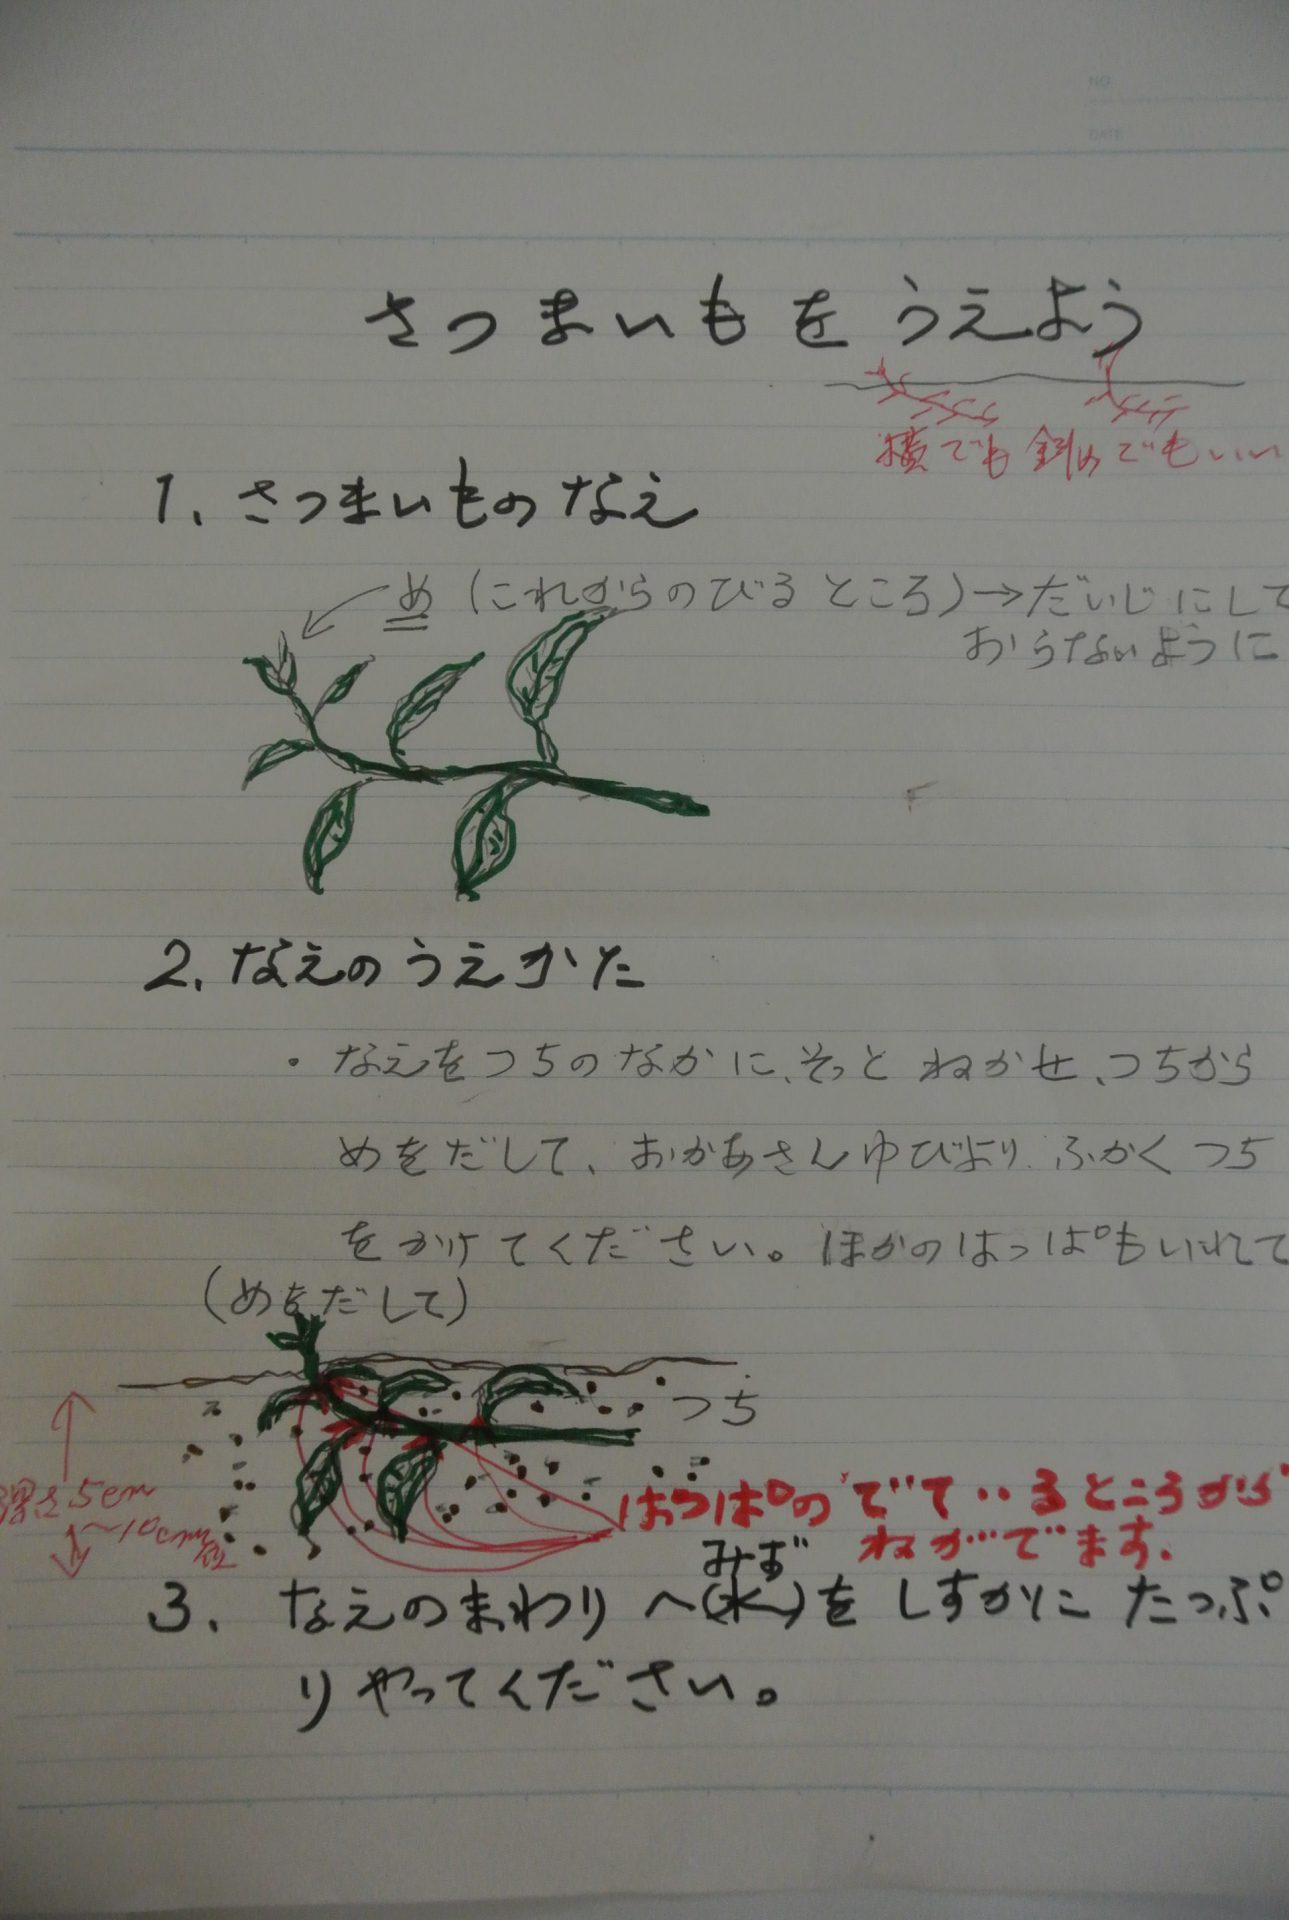 NO.
DATE
さつまいもをうえよう
横でも斜めでもいい
1. さつまいものなえ
め(これからのびるところ)→だいじにして
おらないように
2. なえのうえかた
・なえをつちのなかに、そっとねかせ、つちから
めをだして、おかあさんゆびより ふかくつち
をかけてください。ほかのはっぱもいれて
(めをだして)
つち
深さ5cm
～10cm
はっぱのでているところから
ねがでます.
みず
3. なえのまわりへ(水)をしずかにたっぷ
りやってください。